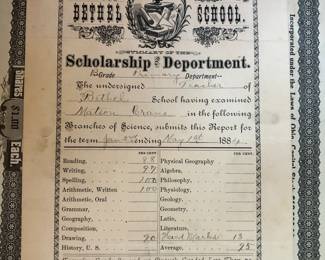 BETHEL SCHOOL.
SUMMARY OF THE
Scholarship and Deportment.
B Grade Primary Department
The undersigned Teacher of
Bethel School having examined
Crane in the following
Branches of Science, submits this Report for
the term May 1st 188
PER CENT. PER CENT.
Reading, 98 Physical Geography
Writing, 97 Algebra,
Spelling, 100 Philosophy,
Arithmetic, Written 100 Physiology,
Arithmetic, Oral Geology,
Grammar, Geometry,
Geography, Latin,
Composition, Literature,
Drawing, 90 Head Marks 13
History, U. S. Average, 95
Shares
Each.
Incorporated under the Laws of Ohio, Capital Stock